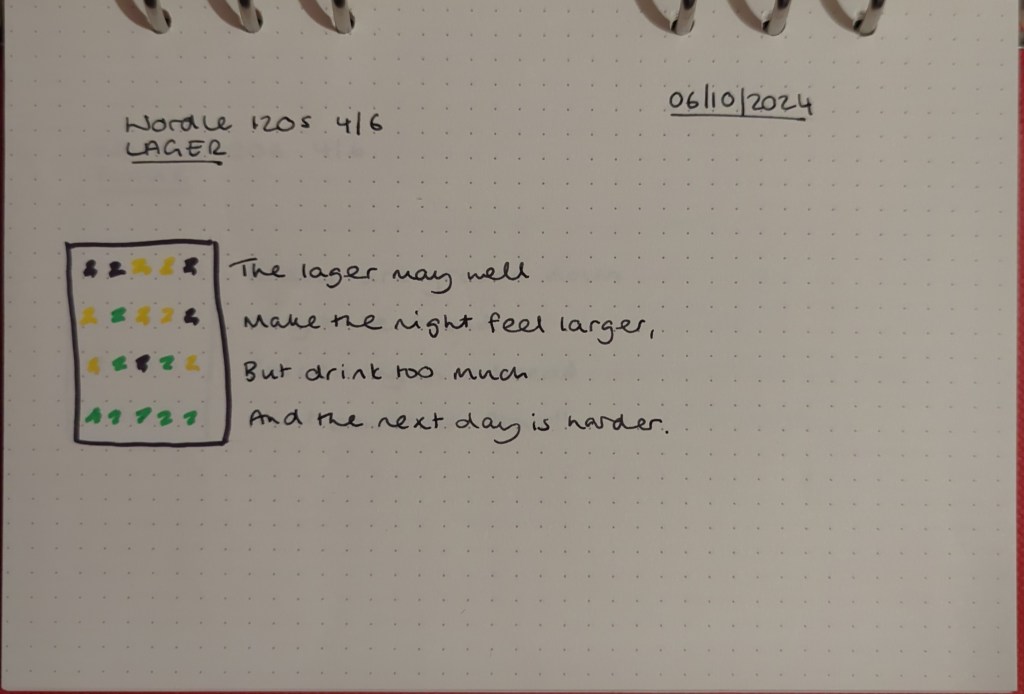 Wordle 1205 4/6
LAGER
06/10/2024
The lager may well
Make the night feel larger,
But drink too much
And the next day is harder.